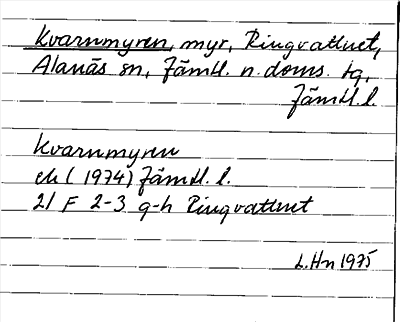 Kvarnmyren, myr, Ringvattnet,
Alanäs sn, Jämtl. n. doms. tg,
Jämtl. l.
Kvarnmyren
ek (1974) Jämtl. l.
21 F 2-3 g-h Ringvattnet
L. Hn 1975